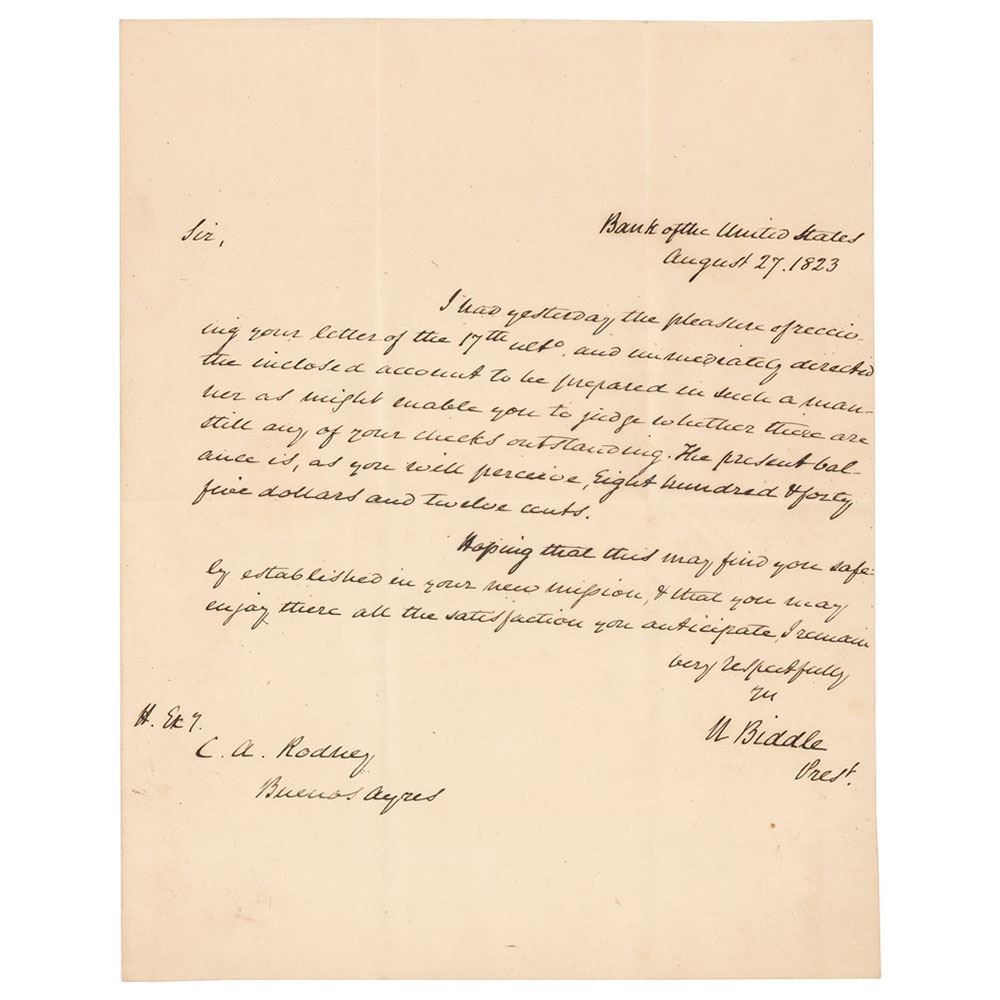 Bank of the United States
August 27. 1823
Sir,
I had yesterday the pleasure of receiv-
ing your letter of the 17th ulto, and immediately directed
the inclosed account to be prepared in such a man-
ner as might enable you to judge whether there are
still any of your checks outstanding. The present bal-
ance is, as you will perceive, Eight hundred & forty
five dollars and twelve cents.
Hoping that this may find you safe-
ly established in your new mission, & that you may
enjoy there all the satisfaction you anticipate, I remain
very respectfully
N Biddle
Prest.
H. Exy.
C. A. Rodney
Buenos Ayres